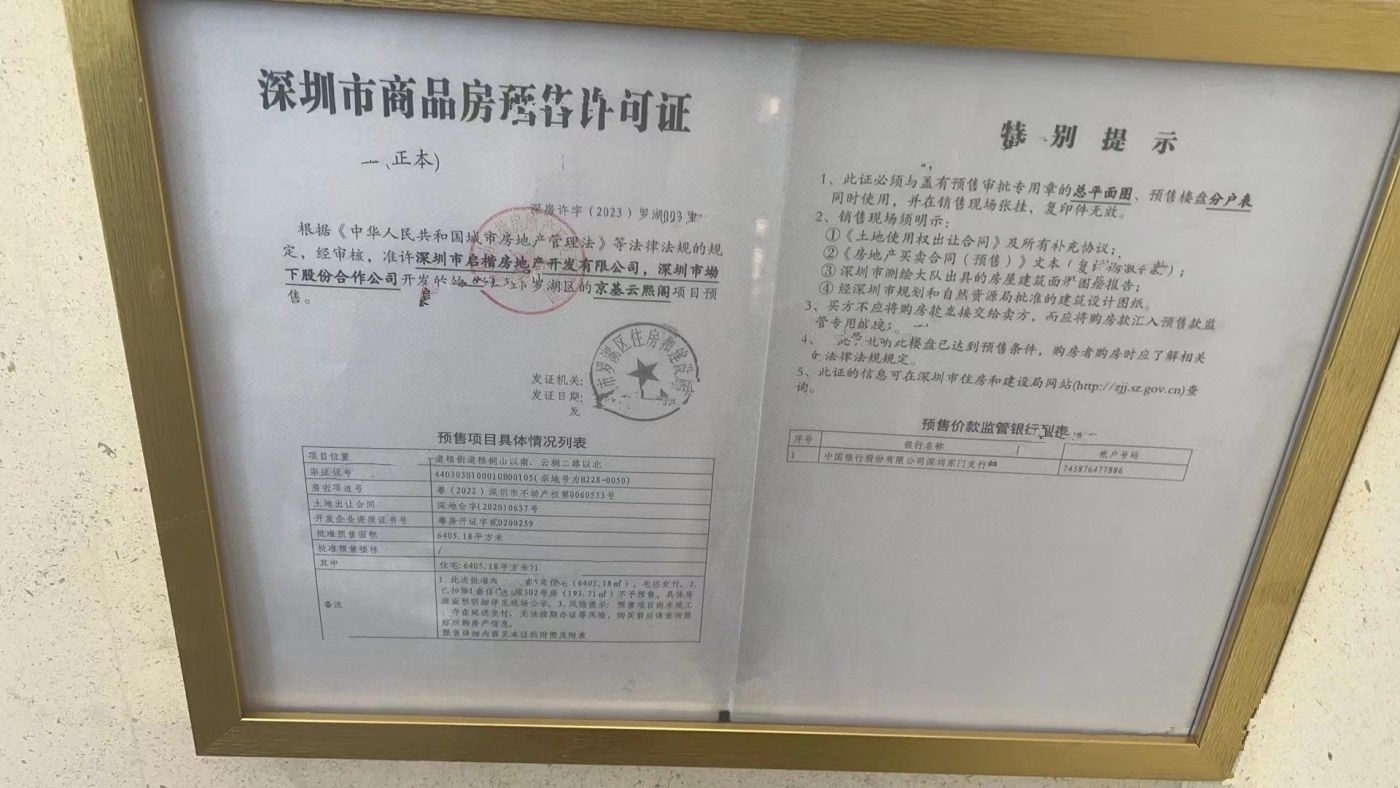 深圳市商品房预售许可证
正本)
深房许字（2023）罗湖003
根据《中华人民共和国城市房地产管理法》等法律法规的规
定，经审核，准许深圳市启楷房地产开发有限公司，深圳市坳
下股份合作公司开发的 罗湖区的京基云熙阁项目预
售。
市罗湖区住房和建设局
发证机关：
发证日期：
发
预售项目具体情况列表
项目位置 道梧桐山以南，云桐二路以北
440303010001GB00105(宗地号为H228-0050)
粤（2022）深圳市不动产权第0060533号
土地出让合同 深地合字(2020)0637号
开发企业资质证书号 粤房开证字贰0200259
批准预售面积 6405.18平方米
批准预售楼栋 /
其中 住宅:6405.18平方米
备注
1.此次批准 (6405.18㎡)，毛坯交付。2.
已扣除1套住 302号房(193.71㎡)不予预售，具体房
源面积明细详见现场公示。3.风险提示：预售项目尚未竣工
，存在延迟交付、无法按期办证等风险，购买前后请查询跟
踪所购房产信息。
预售详细内容见本证的附图及附表
特别提示
1、此证必须与盖有预售审批专用章的总平面图、预售楼盘分户表
同时使用，并在销售现场张挂，复印件无效。
2、销售现场须明示：
①《土地使用权出让合同》及所有补充协议；
②《房地产买卖合同（预售）》文本（ ）；
③深圳市测绘大队出具的房屋建筑面 报告；
④经深圳市规划和自然资源局批准的建筑设计图纸。
3、买方不应将购房款直接交给卖方，而应将购房款汇入预售款监
管专用
4、 此楼盘已达到预售条件，购房者购房时应了解相关
法律法规规定。
5、此证的信息可在深圳市住房和建设局网站(http://zjj.sz.gov.cn)查
询。
预售价款监管银行列表
序号 银行名称 帐户号码
1 中国银行股份有限公司深圳东门支行 745876477886